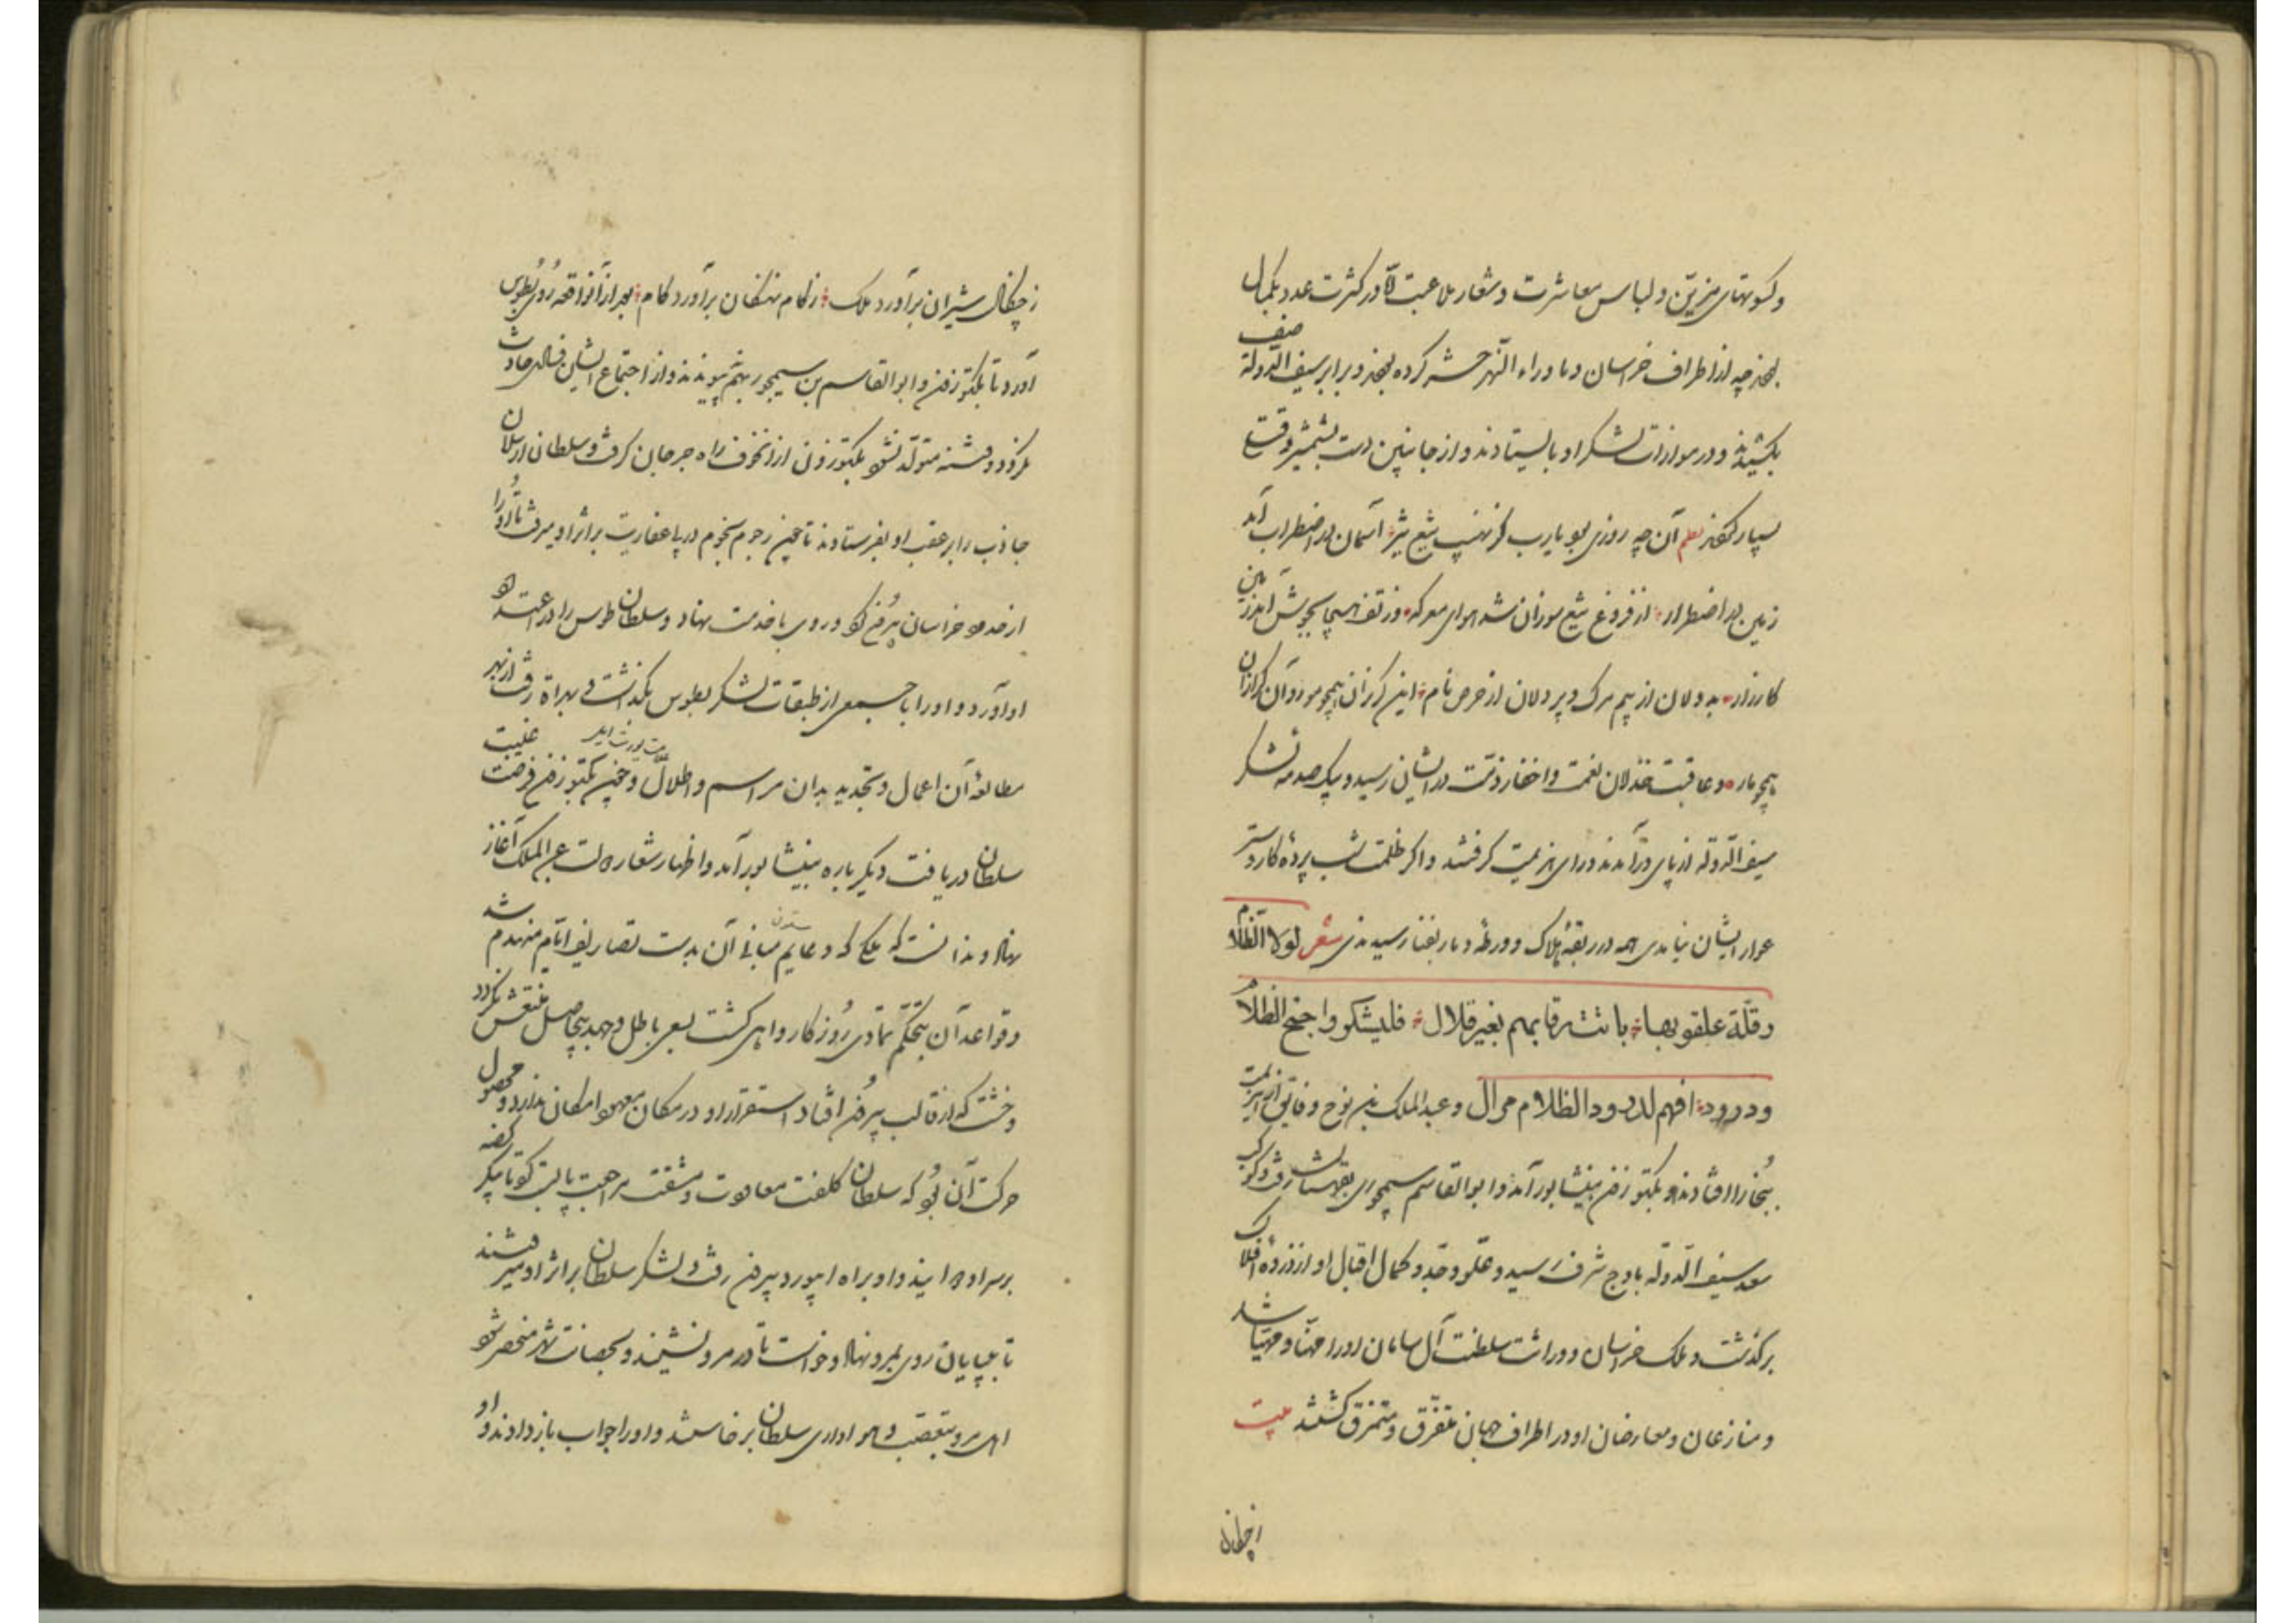 و کسوتهای مزین و لباس معاشرت و شعار ملاعبت تا در کثرت عدد بکمال
بهرچه از اطراف خراسان و ماوراء النهر حشر کرده بودند و برابر سیف الدولة صف
بکشیدند و در موازات لشکر او بایستادند و از جانبین دست بشمشیر وقتی
بسیار کردند نظم آن چه روزی بود یارب کز نهیب تیغ تیز آسمان در اضطراب آمد
زمین در اضطرار از فروغ تیغ سوزان شد هوای معرکه وز تف هیجا بجوش آمد زمین
کارزار بددلان از بیم مرگ و پردلان از حرص نام این گرزان همچو مور و آن گرازان
همچو مار و عاقبت خذلان نعمت و اخفار ذمت در ایشان رسید و بیک صدمه لشکر
سیف الدولة از پای درآمدند و راه هزیمت گرفتند و اگر ظلمت شب پرده کار و ستر
عوار ایشان نیامدی همه در ربقه هلاک و ورطه دمار بفنا رسیدندی شعر لولا الظلام
و قلة علقوا بها باتت رقابهم بغیر قلال فلیشکروا جنح الظلام
و درود افهم لدرود و الظلام موال و عبد الملک بن نوح و فایق از هزیمت
ببخارا افتادند و بکتوزن بنیشابور آمد و ابو القاسم سیمجوری بقهستان رفت و کوکب
سعد سیف الدوله باوج شرف رسید و علو و جد و کمال اقبال او از ذروه افلاک
برگذشت و ملک خراسان و وراثت سلطنت آل سامان او را مهنا و مهیا شد
و منازعان و معارضان او در اطراف جهان متفرق و متمزق گشتند بیت
ز چنگال
ز چنگال شیران برآورد ملک ز کام نهنگان برآورد کام بعد از آن واقعه روی بطوس
آورد تا بکتوزن و ابو القاسم بن سیمجور بهم نپیوندند و از اجتماع ایشان فسادی حادث
نگردد و فتنه متولد نشود بکتوزون از آن خوف راه جرجان گرفت و سلطان ارسلان
جاذب را بر عقب او بفرستاد تا چون رجوم نجوم در پا عفاریت بر اثر او میرفت تا او را
از حدود خراسان بیرون کرد و روی باخدمت نهاد و سلطان طوس را در اعتداد
او آورد و او را با جمعی از طبقات لشکر بطوس بگذاشت و بهراة رفت از بهر
مطالعه آن اعمال و تجدید بدان مراسم و اطلال و چون بکتوزن فرصت غیبت
سلطان دریافت دیگر باره بنیشابور آمد و اظهار شعار دولت عبد الملک آغاز
نهاد و ندانست که ملکی که دعایم مبانی آن بدست تصاریف ایام منهدم شد
و قواعد آن بتحکم تمادی روزگار واهی گشت بسعی باطل و جهد بیحاصل منتعش نگردد
و خشت که از قالب بیرون افتاد استقرار او در مکان معهود امکان ندارد و محصول
حرکت آن بود که سلطان کلفت معاودت و مشقت مراجعت بایست کرد تا بیکره دفعه
بر سر او دوانید و او براه ابیورد بیرون رفت و لشکر سلطان بر اثر او میرفتند
تا بیابان روی بمرو نهاد و خواست تا در مرو نشیند و بحصانت شهر متحصن شود
اهل مرو بتعصب و هواداری سلطان برخاستند و او را جواب باز دادند و او